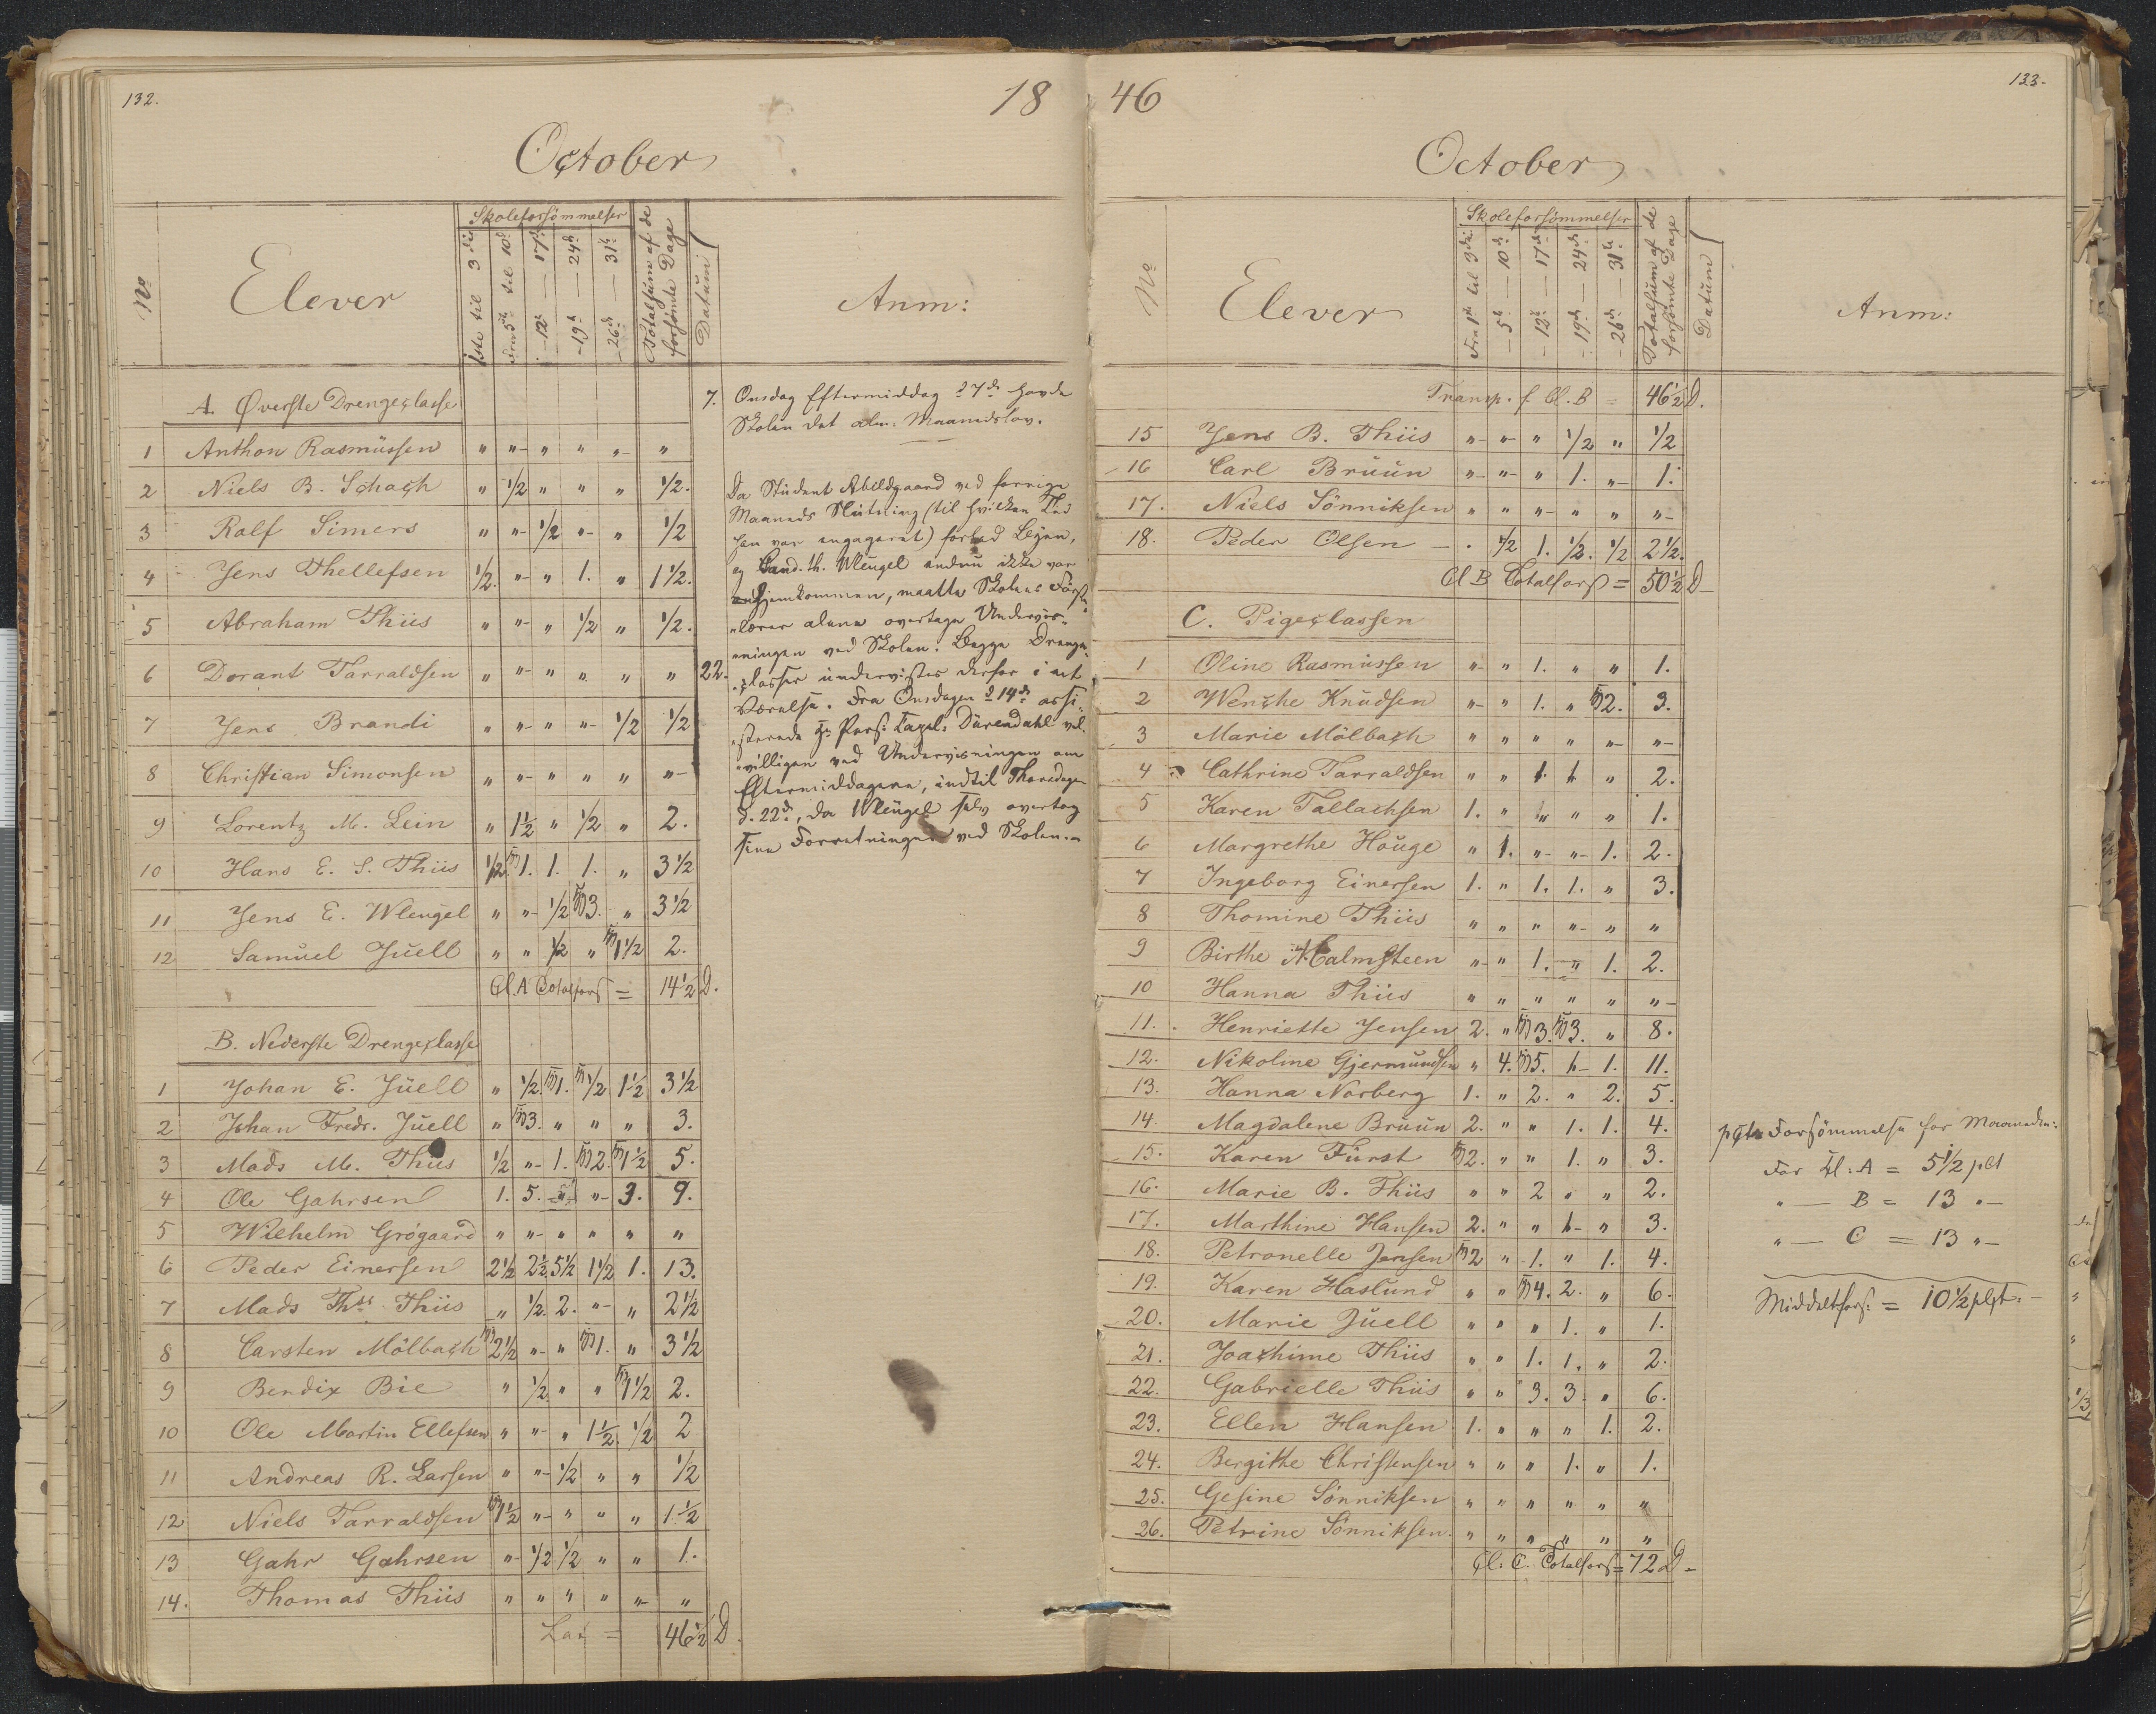 132.
18
October
No
Elever
Skoleforsömmelser
1ste til 3die
Fra 5te til 10d
- 12te — 17de
- 19de — 24de
- 26de — 31te
Totalsum af de
forsømte Dage
Datum
Anm:
A. Øverste Drengeclasse
1 Anthon Rasmussen " " " " " "
2 Niels B. Schach " 1/2 " " " 1/2.
3 Rolf Simers " " 1/2 " " 1/2
4 Jens Thellefsen 1/2. " " 1. " 1 1/2.
5 Abraham Thiis " " " 1/2 " 1/2.
6 Dorant Tarraldsen " " " " " "
7 Jens Brandi " " " " 1/2 1/2
8 Christian Simonsen " " " " " "
9 Lorentz M. Lein " 1 1/2 " 1/2 " 2.
10 Hans E. S. Thiis 1/2 1. 1. 1. " 3 1/2
11 Jens E. Wleugel " " 1/2 3. " 3 1/2
12 Samuel Juell " " 1/2 " 1 1/2 2.
Cl. A Totalfors = 14 1/2 D.
B. Nederste Drengeclasse
1 Johan E. Juell " 1/2. 1. 1/2 1 1/2 3 1/2
2 Johan Fredr. Juell " 3. " " " 3.
3 Mads M. Thiis 1/2 " 1. 2. 1 1/2 5.
4 Ole Gahrsen 1. 5. " " 3. 9.
5 Wilhelm Grögaard " " " " " "
6 Peder Einersen 2 1/2 2 1/2 5 1/2 1 1/2 1. 13.
7 Mads Ths. Thiis " 1/2. 2. " " 2 1/2
8 Carsten Mölbach 2 1/2 " " 1. " 3 1/2
9 Bendix Bie " 1/2. " " 1 1/2 2.
10 Ole Martin Ellefsen " " " 1 1/2. 1/2 2
11 Andreas R. Larsen " " 1/2 " " 1/2
12 Niels Tarraldsen 1 1/2 " " " " 1 1/2
13 Gahr Gahrsen " 1/2 1/2 " " 1.
14. Thomas Thiis " " " " " "
Lat = 46 1/2 D.
7. Onsdag Eftermiddag d 7de havde
Skolen det alm: Maanedslov.
Da Student Abildgaard ved forrige
Maaneds Slutning (til hvilken Tid
han var engageret) forlod Byen,
og Cand. th. Wleugel endnu ikke var
hjemkommen, maatte Skolens Förste-
lærer alene overtage Undervis-
ningen ved Skolen. Begge Drenge-
22. classer undervistes derfor i eet
Værelse. Fra Onsdagen d 14de assi-
sterede Hr Pers: Capel: Dürendahl vel-
villigen ved Undervisningen om
Eftermiddagene, indtil Thorsdagen
d. 22de, da Wleugel selv overtog
sine Forretninger ved Skolen.
46
133.
October
No
Elever
Skoleforsömmelser
Fra 1ste til 3die
- 5te — 10de
- 12te — 17de
- 19de — 24de
- 26de — 31te
Totalsum af de
forsømte Dage
Datum
Anm:
Transp. f Cl. B = 46 1/2 D.
15 Jens B. Thiis " " " 1/2 " 1/2
16 Carl Bruun " " " 1. " 1.
17. Niels Sönniksen " " " " " "
18. Peder Olsen . 1/2 1. 1/2. 1/2 2 1/2.
Cl B Totalfors = 50 1/2 D
C. Pigeclassen
1 Oline Rasmussen " " 1. " " 1.
2 Wenche Knudsen " " 1. " 2. 3.
3 Marie Mölbach " " " " " "
4 Cathrine Tarraldsen " " 1. 1. " 2.
5 Karen Tallachsen 1. " " " " 1.
6 Margrethe Houge " 1. " " 1. 2.
7 Ingeborg Einersen 1. " 1. 1. " 3.
8 Thomine Thiis " " " " " "
9 Birthe Malmsteen " " 1. " 1. 2.
10 Hanna Thiis " " " " " "
11. Henriette Jensen 2. " 3. 3. " 8.
12. Nikoline Gjermundsen " 4. 5. 1. 1. 11.
13. Hanna Norberg 1. " 2. " 2. 5.
14. Magdalene Bruun 2. " " 1. 1. 4.
15. Karen Fürst 2. " " 1. " 3.
16. Marie B. Thiis " " 2 " " 2.
17. Marthine Hansen 2. " " 1. " 3.
18. Petronelle Jensen 2 " 1. " 1. 4.
19. Karen Haslund " " 4. 2. " 6.
20. Marie Juell " " " 1. " 1.
21. Joachime Thiis " " 1. 1. " 2.
22. Gabrielle Thiis " " 3. 3. " 6.
23. Ellen Hansen 1. " " " 1. 2.
24. Bergithe Christensen " " " 1. " 1.
25. Gesine Sönniksen " " " " " "
26. Petrine Sönniksen " " " " " "
Cl: C. Totalfors = 72 D
pCts Forsömmelse for Maaneden:
For Cl: A = 5 1/2 pCt
" — B = 13 "
" — C = 13 "
Middeltfors: = 10 1/2 pCt.